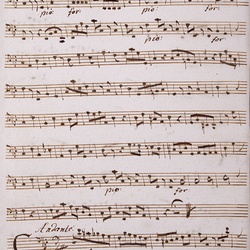 pio: for: pio: for:
pio: for:
pio: for
Andante